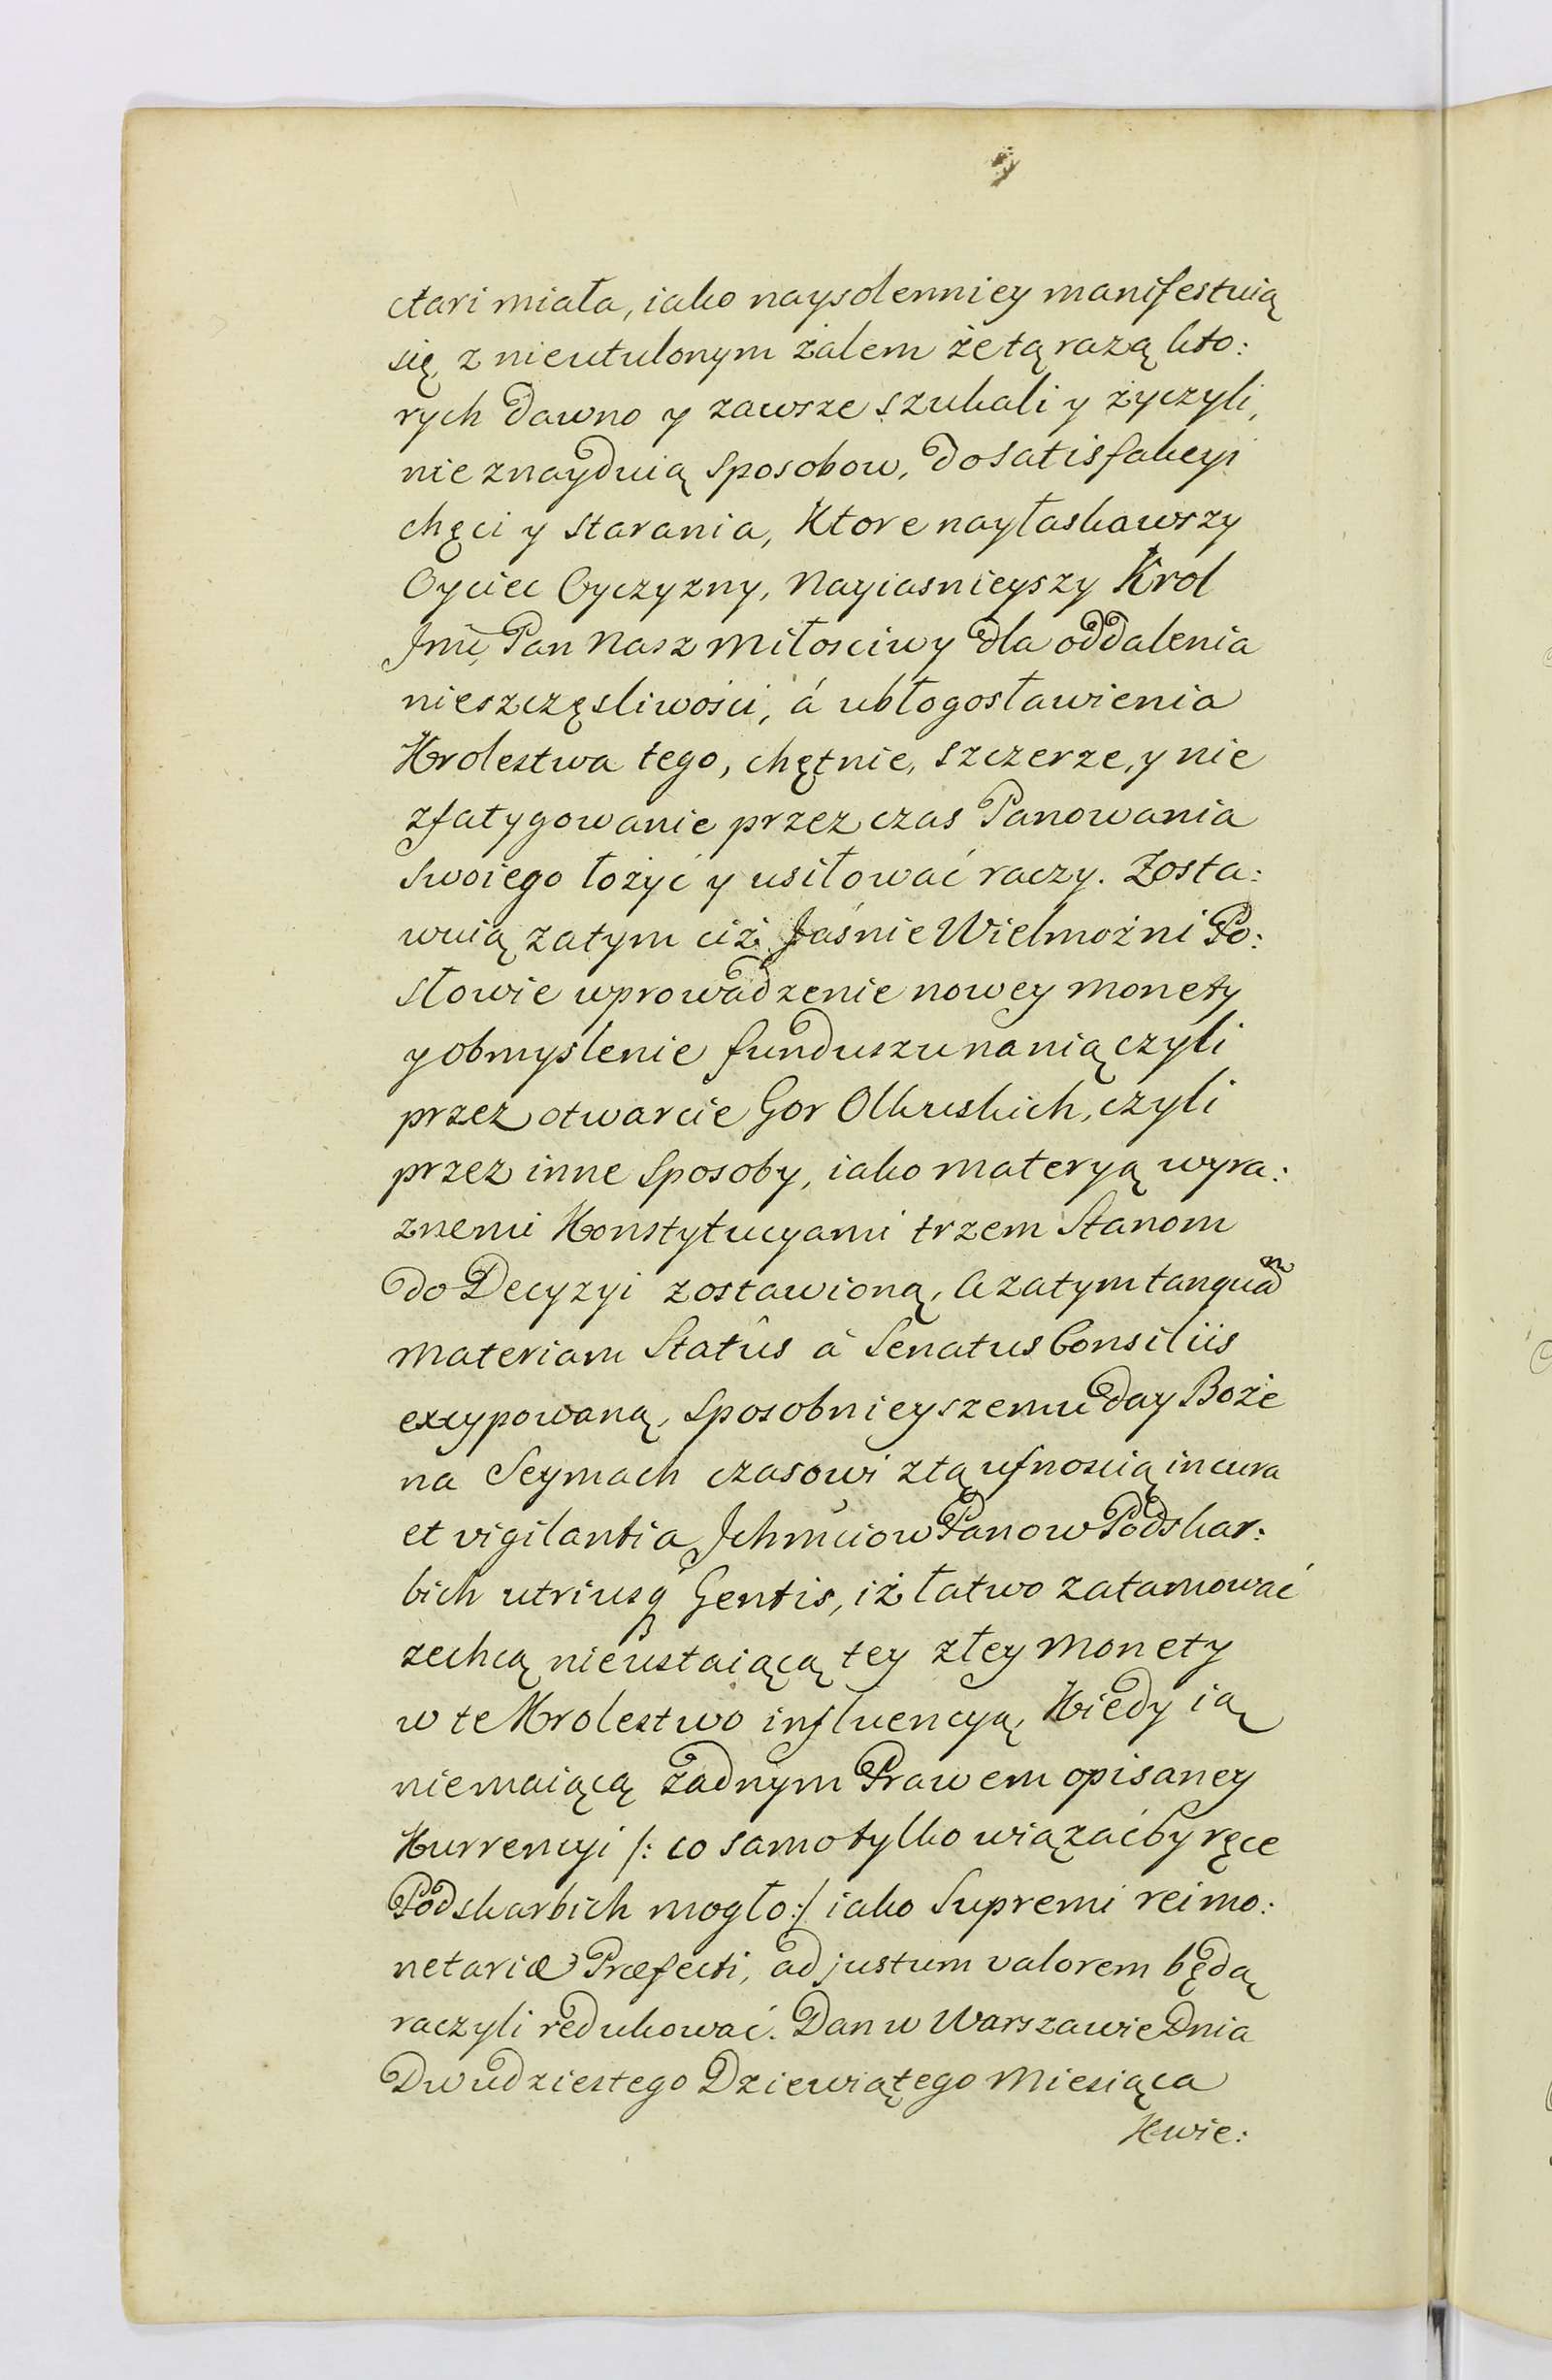 ctari miała, iako naysolenniey manifestuią
się z nieutulonym żalem że tą razą kto:
rych dawno y zawsze szukali y życzyli,
nie znayduią sposobow, do satisfakcyi
chęci y starania, Ktore nayłaskawszy
Oyciec Oyczyzny, Nayiasnieyszy Krol
Jmć, Pan Nasz Miłosciwy dla oddalenia
nieszczęsliwości, á ubłogosławienia
Krolestwa tego, chętnie, szczerze, y nie
zfatygowanie przez czas Panowania
swoiego łożyć y usiłować raczy. Zosta:
wuią zatym ciż Jaśnie Wielmożni Po:
słowie wprowadzenie nowey monety
y obmyslenie funduszu na nią czyli
przez otwarcie Gor Olkuskich, czyli
przez inne sposoby, iako materyą wyra:
znemi Konstytucyami trzem Stanom
do Decyzyi zostawioną, a zatym tanquam
materiam Statûs à Senatus Consiliis
excypowaną, sposobnieyszemu day Boże
na Seymach czasowi z tą ufnoscią in cura
et vigilantia Jchmciow Panow Podskar:
bich utriusq Gentis, iż łatwo zatamować
zechcą nieustaiącą tey złey monety
w te Krolestwo influencyą, Kiedy ią
niemaiącą żadnym Prawem opisaney
Kurrencyi /: co samo tylko wiązaćby ręce
Podskarbich mogło :/ iako Supremi rei mo:
netariæ Præfecti, ad justum valorem będą
raczyli redukować. Dan w Warszawie Dnia
Dwudziestego Dziewiątego Miesiąca
Kwie: